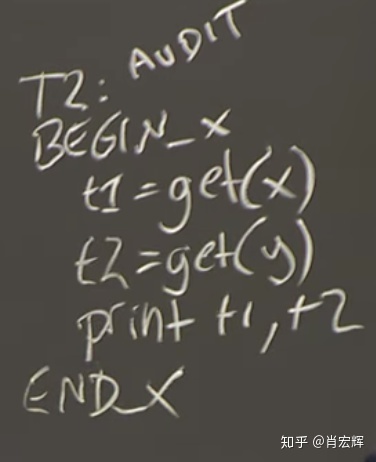 T2: AUDIT
BEGIN_X
t1=get(x)
t2=get(y)
print t1,t2
END_X
知乎 @肖宏辉